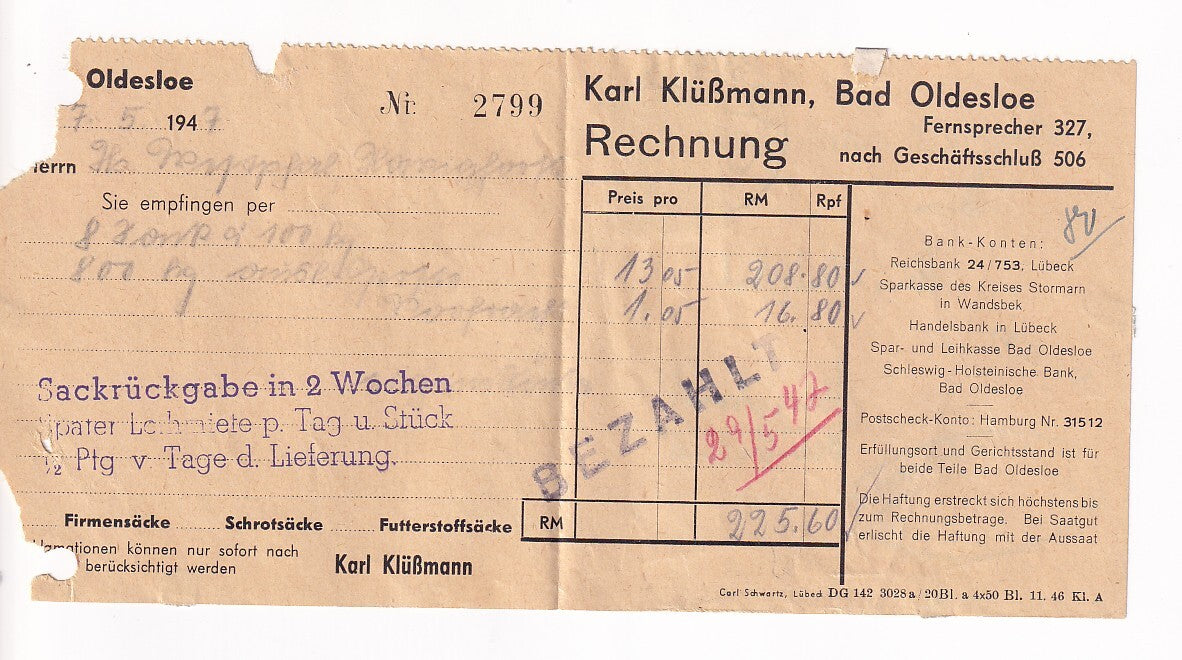 Oldesloe
7. 5 1947
Nr. 2799
Herrn
Sie empfingen per
8 à 100 kg
800 kg
Sackrückgabe in 2 Wochen
Später p. Tag u. Stück
½ Pfg v Tage d. Lieferung.
Firmensäcke Schrotsäcke Futterstoffsäcke
können nur sofort nach
berücksichtigt werden
Karl Klüßmann
Karl Klüßmann, Bad Oldesloe
Fernsprecher 327,
Rechnung
nach Geschäftsschluß 506
Preis pro RM Rpf
13 05 208.80
1.05 16.80
BEZAHLT
29/5 47
RM 225.60
Bank-Konten:
Reichsbank 24/753, Lübeck
Sparkasse des Kreises Stormarn
in Wandsbek
Handelsbank in Lübeck
Spar- und Leihkasse Bad Oldesloe
Schleswig-Holsteinische Bank,
Bad Oldesloe
Postscheck-Konto: Hamburg Nr. 31512
Erfüllungsort und Gerichtsstand ist für
beide Teile Bad Oldesloe
Die Haftung erstreckt sich höchstens bis
zum Rechnungsbetrage. Bei Saatgut
erlischt die Haftung mit der Aussaat
Carl Schwartz, Lübeck DG 142 3028a/20Bl. a 4x50 Bl. 11. 46 Kl. A